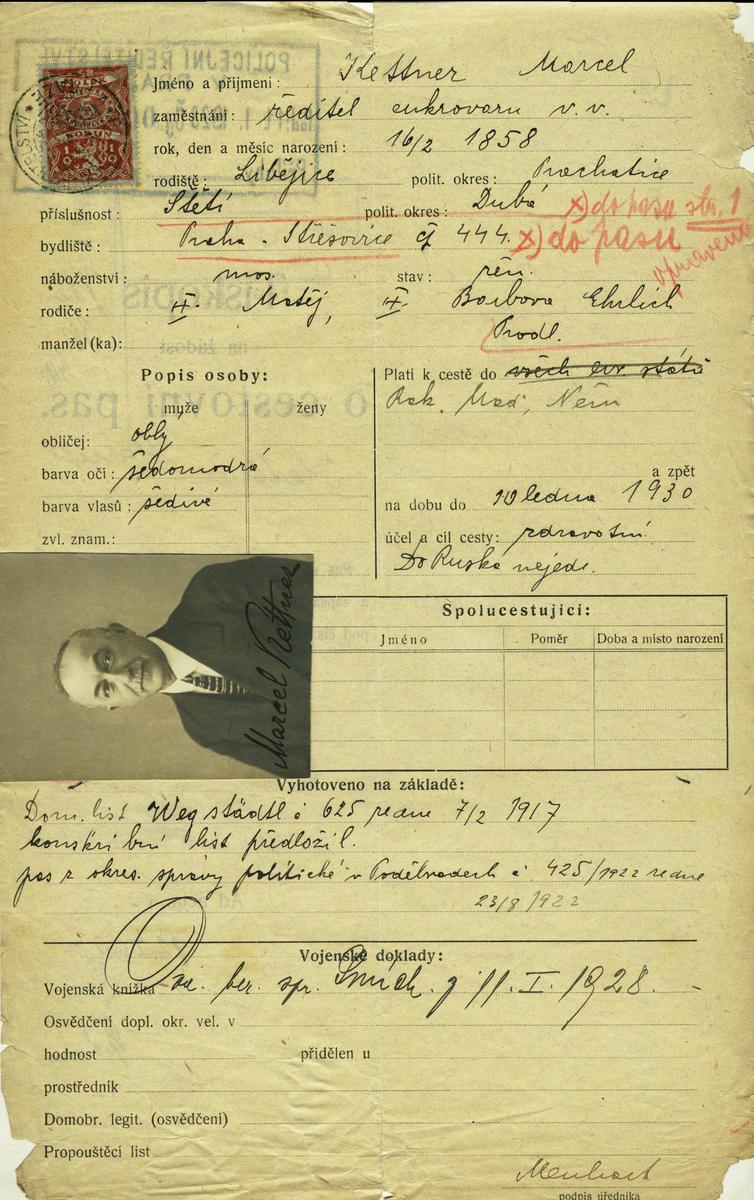 Jméno a příjmení: Kettner Marcel
zaměstnání: ředitel cukrovaru v. v.
rok, den a měsíc narození: 16/2 1858
rodiště: Libějice polit. okres: Prachatice
příslušnost: Štětí polit. okres: Dubá x) do pasu str. 1
bydliště: Praha - Střešovice čj 444. x) do pasu
opraveno
náboženství: mos. stav: žen.
rodiče: Matěj, Barbora Ehrlich
manžel(ka): Prodl.
Popis osoby:
muže ženy
obličej: oblý
barva očí: šedomodré
barva vlasů: šedivé
zvl. znam.:
Platí k cestě do všech evr. států
Rak. Maď, Něm
a zpět
na dobu do 10 ledna 1930
účel a cíl cesty: zdravotní
Do Ruska nejede.
Marcel Kettner
Spolucestující:
Jméno Poměr Doba a místo narození
Vyhotoveno na základě:
Dom. list Wegstädtl č 625 ze dne 7/2 1917
konskribní list předložil.
pas z okres. správy politické v Poděbradech č 425/1922 ze dne
23/8 1922
Vojenské doklady:
Vojenská knížka ber. spr. Smích. z 11. I. 1928. -
Osvědčení dopl. okr. vel. v
hodnost přidělen u
prostředník
Domobr. legit. (osvědčení)
Propouštěcí list
podpis úředníka